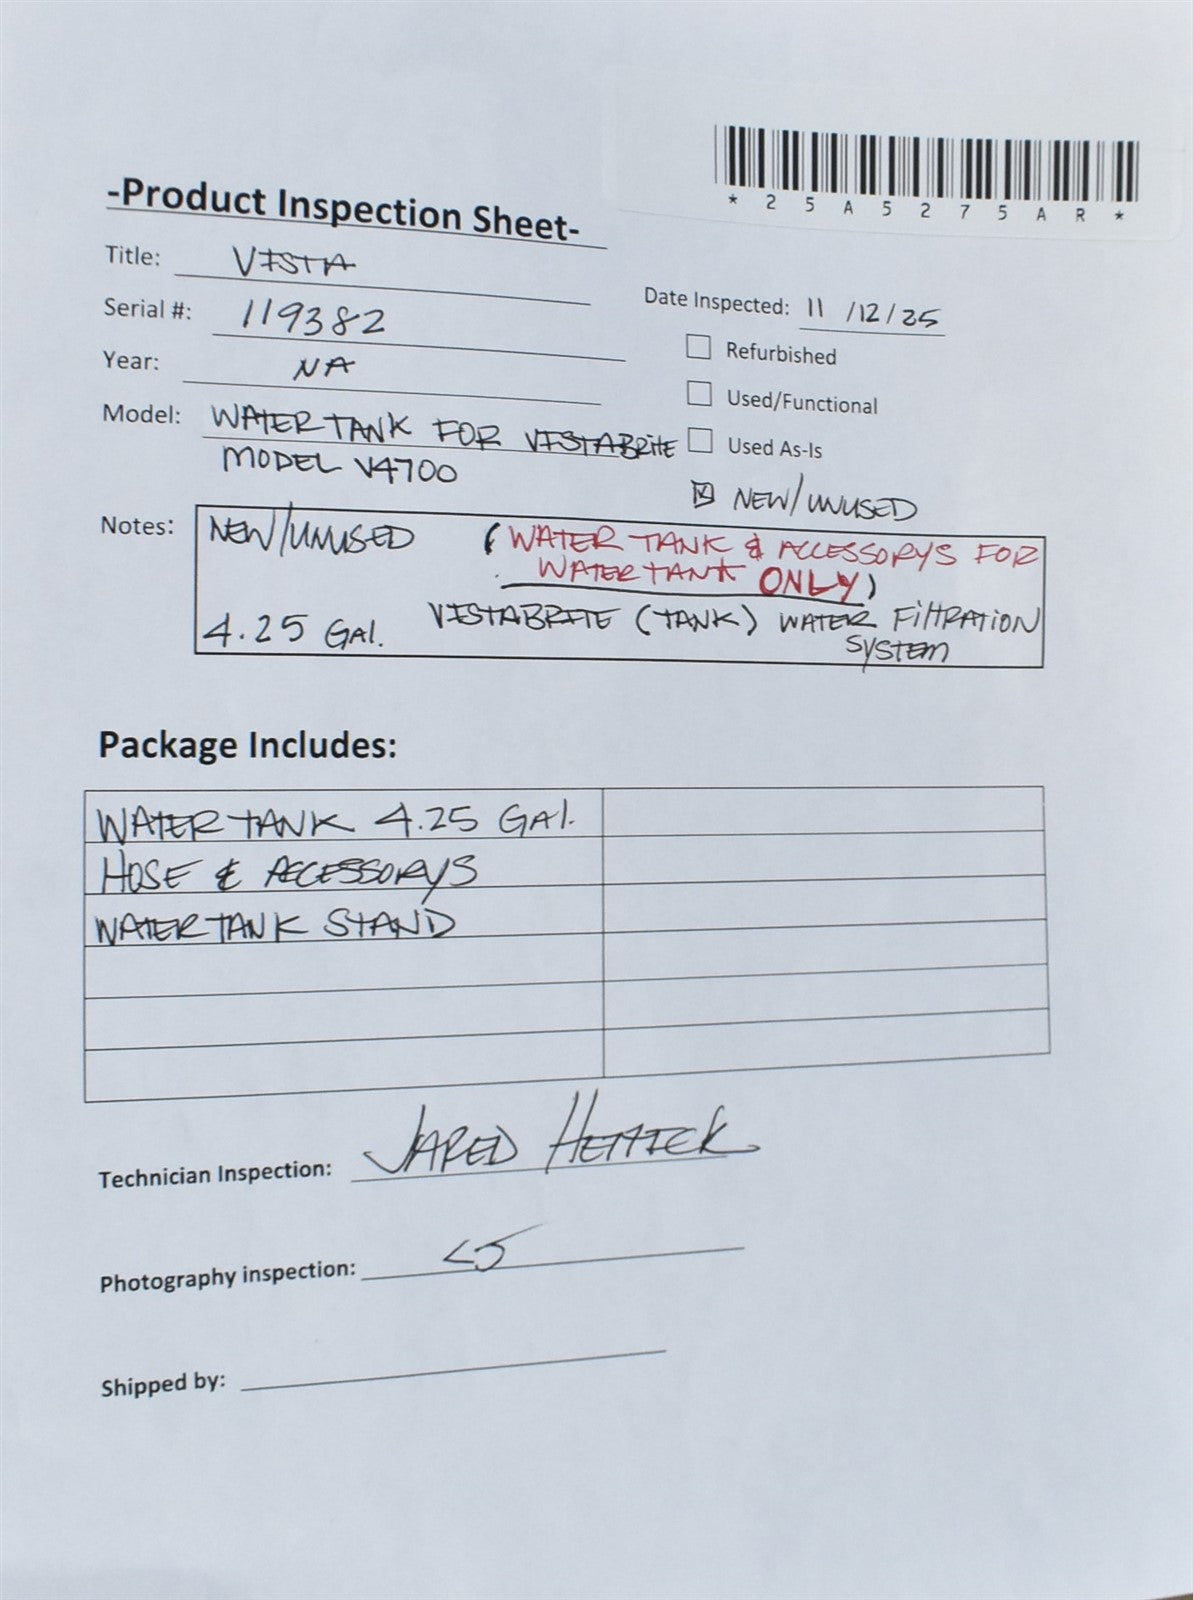 *25A5275AR*
-Product Inspection Sheet-
Title: VISTA
Serial #: 119382
Date Inspected: 11/12/25
Year: NA
Refurbished
Used/Functional
Model: WATER TANK FOR VISTABRITE
MODEL V4700
Used As-Is
NEW/UNUSED
Notes: NEW/UNUSED (WATER TANK & ACCESSORYS FOR
WATER TANK ONLY)
4.25 GAL. VISTABRITE (TANK) WATER FILTRATION
SYSTEM
Package Includes:
WATER TANK 4.25 GAL.
HOSE & ACCESSORYS
WATER TANK STAND
Technician Inspection: JARED HETTICK
Photography inspection:
Shipped by: